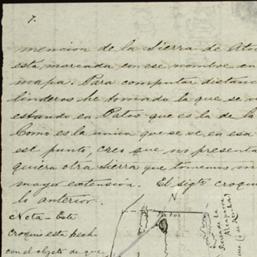 7.
mención de la Sierra de
está marcada con ese nombre en
mapa. Para computar distanc
linderos he tomado la que se v
estando en Patos que es la de la
Como es la única que se ve, en esa
ese punto, creo que no presenta
quiera otra Sierra que tomemos
mayor extensión. El sigte croqui
lo anterior.
Nota - Este
croquis esta hech
con el objeto de que
N